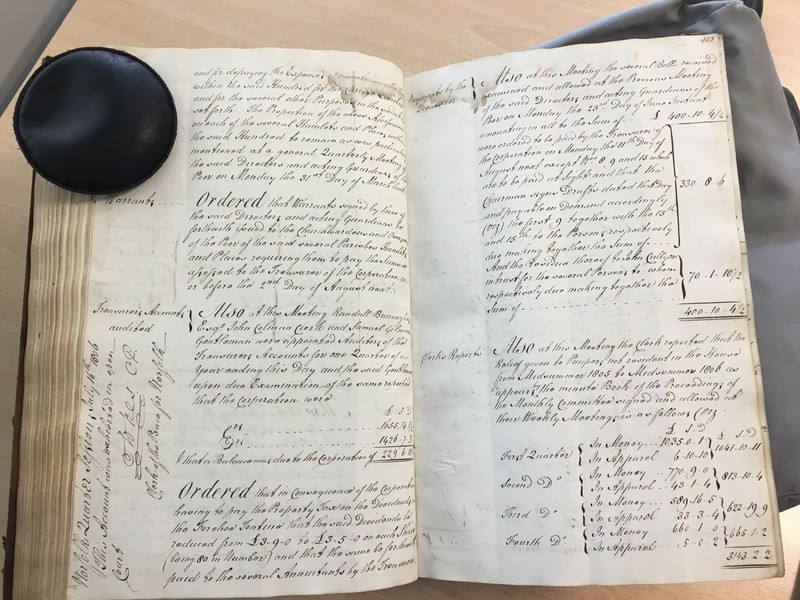 and for defraying the Expences
within the said Hundred for the
and for the several other Purposes in the said Act
setforth The Proportion of the above Assessment
on each of the several Hamlets and Places in
the said Hundred to remain as was particularly
mentioned at a general Quarterly Meeting of
the said Directors and acting Guardians of the
Poor on Monday the 31st Day of March last
Warrants
Ordered that Warrants signed by three of
the said Directors and acting Guardians be
forthwith issued to the Churchwardens and Overseers
of the Poor of the said several Parishes Hamlets
and Places requiring them to pay the Sums so
assessed to the Treasurer of the Corporation on
or before the 2nd Day of August next
Treasurers Accounts
audited
Also at this Meeting Randall Burroughes
Esqr. John Colman Clerk and Samuel
Gentleman were appointed Auditors of the
Treasurers Accounts for one Quarter of a
Year ending this Day and the said Gentlemen
upon due Examination of the same reported
that the Corporation were
£ S D
Crs.
Drs. 1426 7
& that a Balance was due to the Corporation of 229 6
Ordered that in Consequence of the Corporation
having to pay the Property Tax on the Dividends
the said Dividends be
reduced from £3-9-0 to £3-5-0 on each Share
(being 80 in Number) and that the same be forthwith
paid to the several Annuitants by the Treasurer
Norfolk Quarter Session July 16th 1806
This Account was confirmed in open
Court
Clerk of the Peace for Norfolk
423
Payments by the
Treasurer
Also at this Meeting the several Bills received
examined and allowed at the Previous Meeting
of the said Directors and acting Guardians of the
Poor on Monday the 23rd Day of June Instant
amounting in all to the Sum of £ 400-10-4½
were ordered to be paid by the Treasurer of
the Corporation on Monday the 11th Day of
August next except Nos. 8, 9 and 15 which
are to be paid at Sight and that the
Chairman signs Drafts dated that Day
and payable on Demand accordingly
(viz) the first 9 together with the 13th
and 15th to the Persons respectively
due making together the Sum of 330 8 6
And the Residue thereof to John Culley
in trust for the several Persons to whom
respectively due making together the
Sum of 70-1-10½
400-10-4½
Clerks Reports
Also at this Meeting the Clerk reported that the
Relief given to Paupers not resident in the House
from Midsummer 1805 to Midsummer 1806 as
appears by the minute Book of the Proceedings of
the Monthly Committee signed and allowed at
their Weekly Meetings is as follows (viz)
£ S D £ S D
First Quarter In Money 1035-0-1
In Apparel 6-10-10 1041-10-11
Second Do. In Money 770-9-0
In Apparel 43-1-4 813-10-4
Third Do. In Money 589-16-5
In Apparel 33-3-4 622-19-9
Fourth Do. In Money 660-1-0
In Apparel 5-0-2 665-1-2
3143-2-2